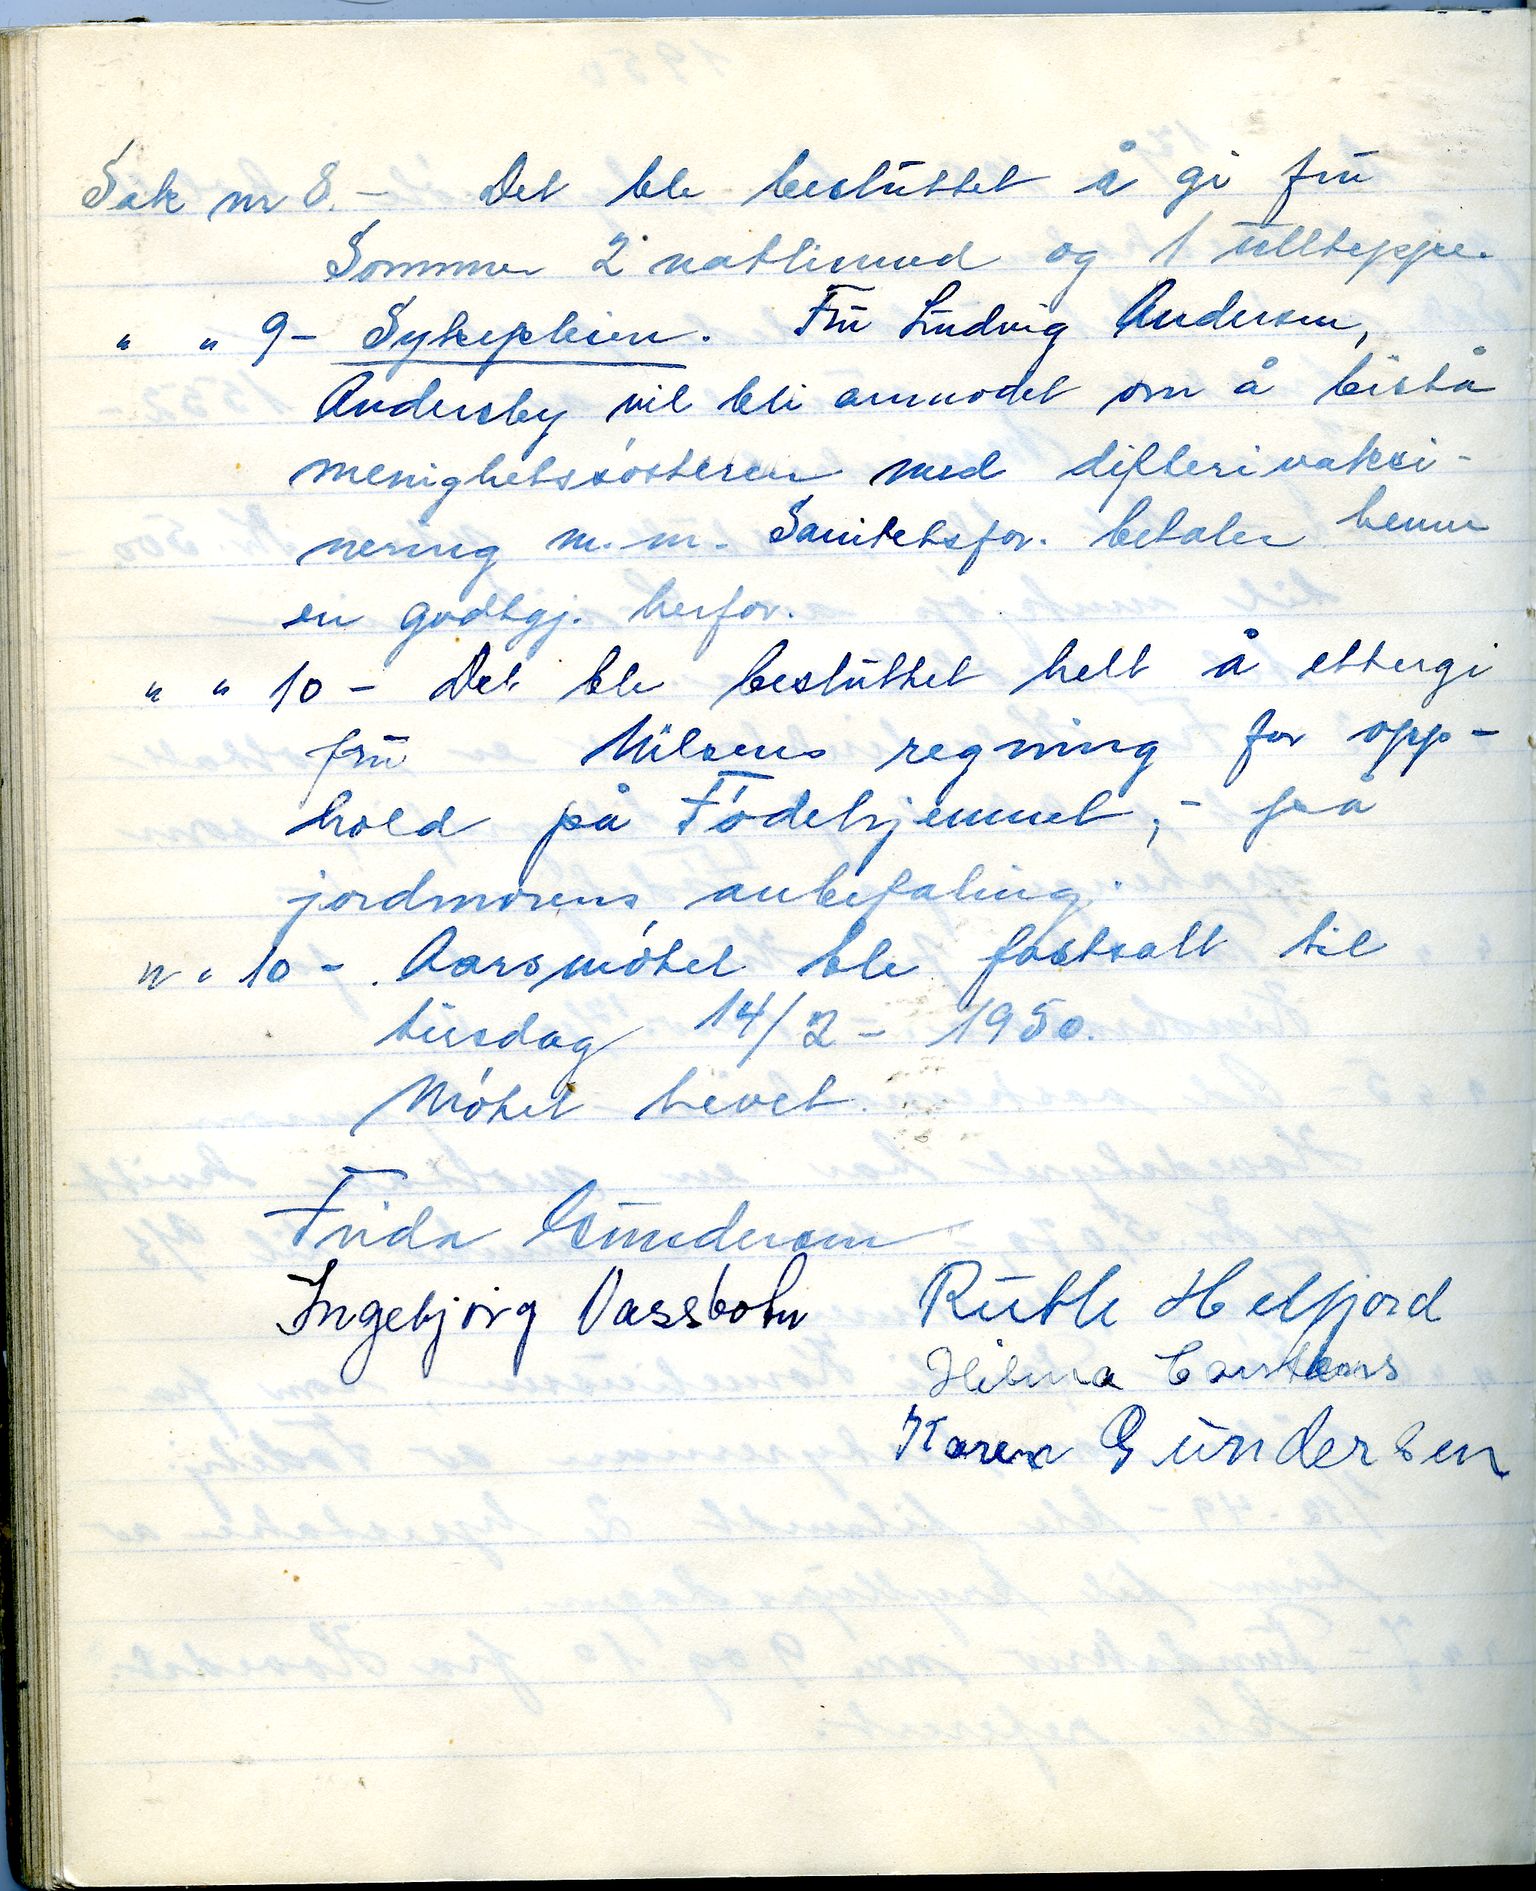 Sak nr 8. - Det ble besluttet å gi fru
Sommer 2 nattlinned og 1 ullteppe.
" " 9 - Sykepleien. Fru Ludvig Andersen,
Andersby vil bli anmodet om å bistå
menighetssøsteren med difterivaksi-
nering m.m. Sanitetsfor. betaler henne
en godtgj. herfor.
" " 10 - Det ble besluttet helt å ettergi
fru Nilsens regning for opp-
hold på Fødehjemmet, - på
jordmorens anbefaling.
" " 10 - Aarsmøtet ble fastsatt til
tirsdag 14/2 - 1950.
Møtet hevet.
Frida Gundersen
Ingebjørg Vassbotn Ruth Helfjord
Hilma Carstens
Karen Gundersen